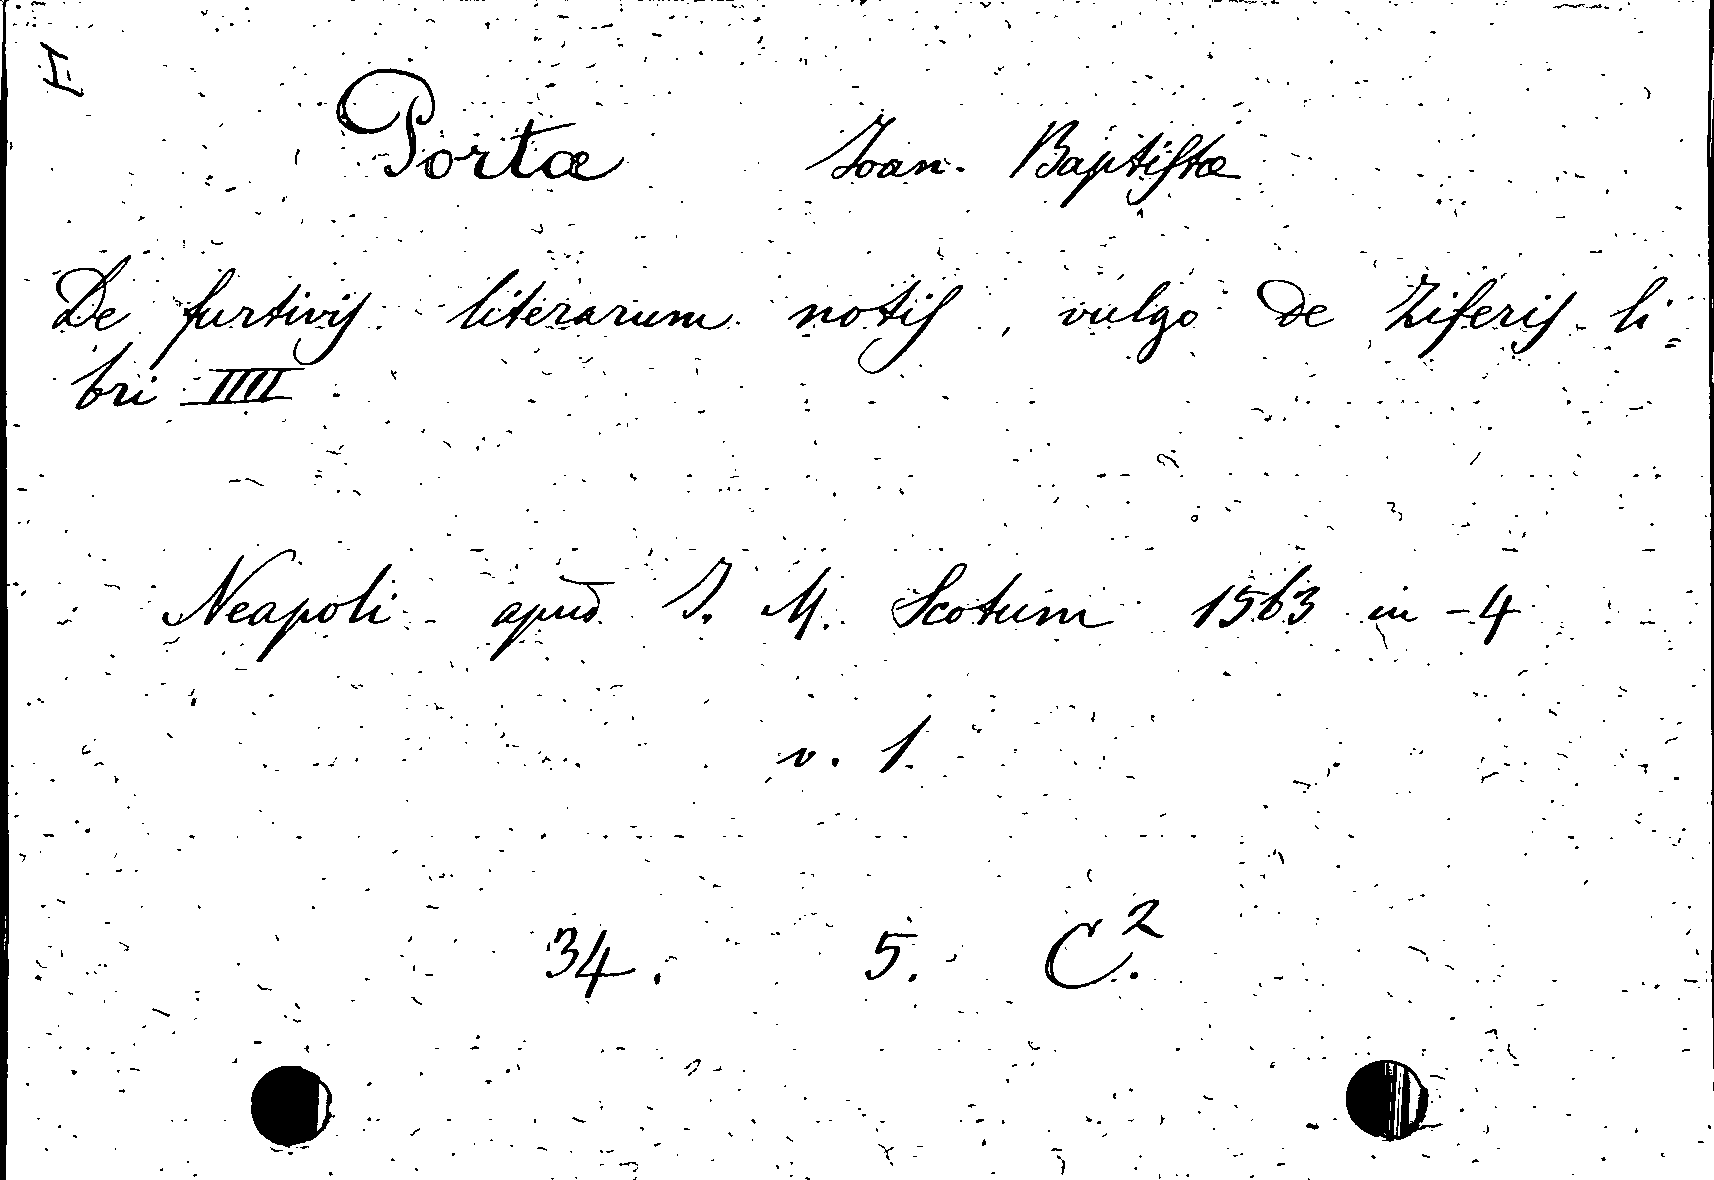 I
Portæ Ioan. Baptistæ
De furtivis literarum notis, vulgo de Ziferis li=
bri IIII
Neapoli apud I. M. Scotum 1563 in-4
v. 1
34. 5. C.²